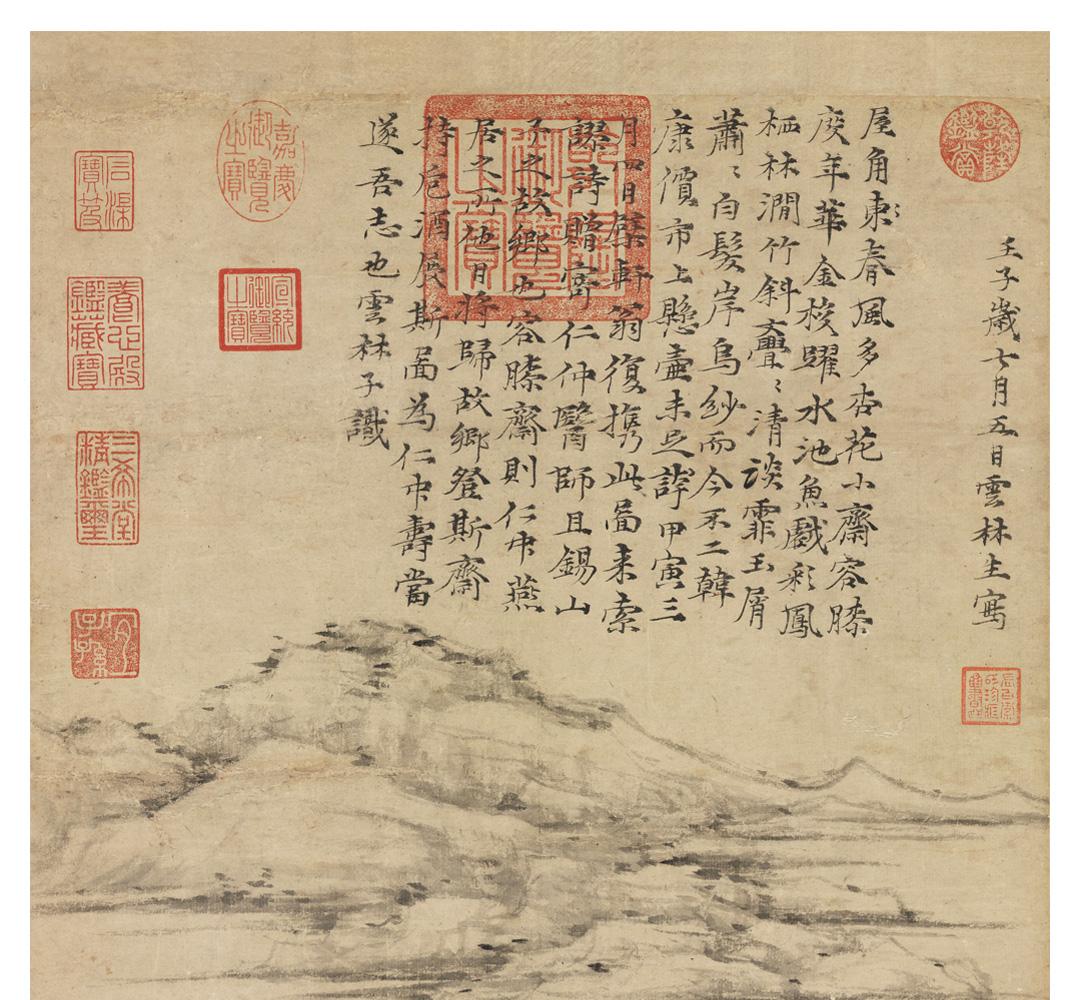 壬子歲七月五日雲林生寫
屋角東春風多杏花小齋容膝
度年華金梭躍水池魚戲彩鳳
栖林澗竹斜亹〻清談霏玉屑
蕭〻白髮岸烏紗而今不二韓
康價市上懸壺未足誇甲寅三
月四日檗軒翁復携此啚来索
謬詩贈寄仁仲醫師且錫山
予之故鄉也容膝齋則仁中燕
居之所他日將歸故鄉登斯齋
持卮酒展斯啚為仁中壽當
遂吾志也雲林子識
乾隆鑑賞
嘉慶御覽之寶
宣統御覽之寶
石渠寶笈
養心殿鑑藏寶
三希堂精鑑璽
宜子孫